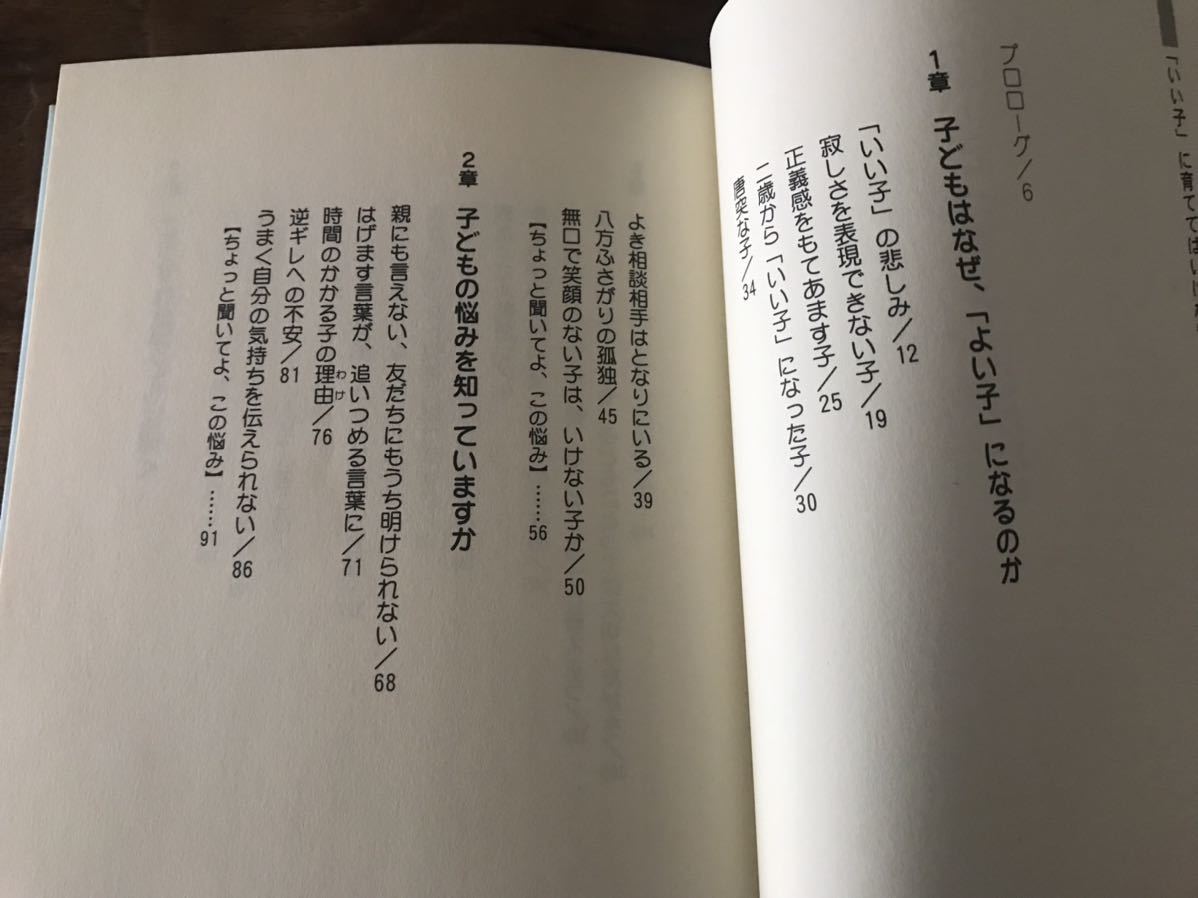 「いい子」に育ててはいけ
プロローグ/6
1章 子どもはなぜ、「よい子」になるのか
「いい子」の悲しみ/12
寂しさを表現できない子/19
正義感をもてあます子/25
二歳から「いい子」になった子/30
唐突な子/34
よき相談相手はとなりにいる/39
八方ふさがりの孤独/45
無口で笑顔のない子は、いけない子か/50
【ちょっと聞いてよ、この悩み】……56
2章 子どもの悩みを知っていますか
親にも言えない、友だちにもうち明けられない/68
はげます言葉が、追いつめる言葉に/71
時間のかかる子の理由/76
わけ
逆ギレへの不安/81
うまく自分の気持ちを伝えられない/86
【ちょっと聞いてよ、この悩み】……91